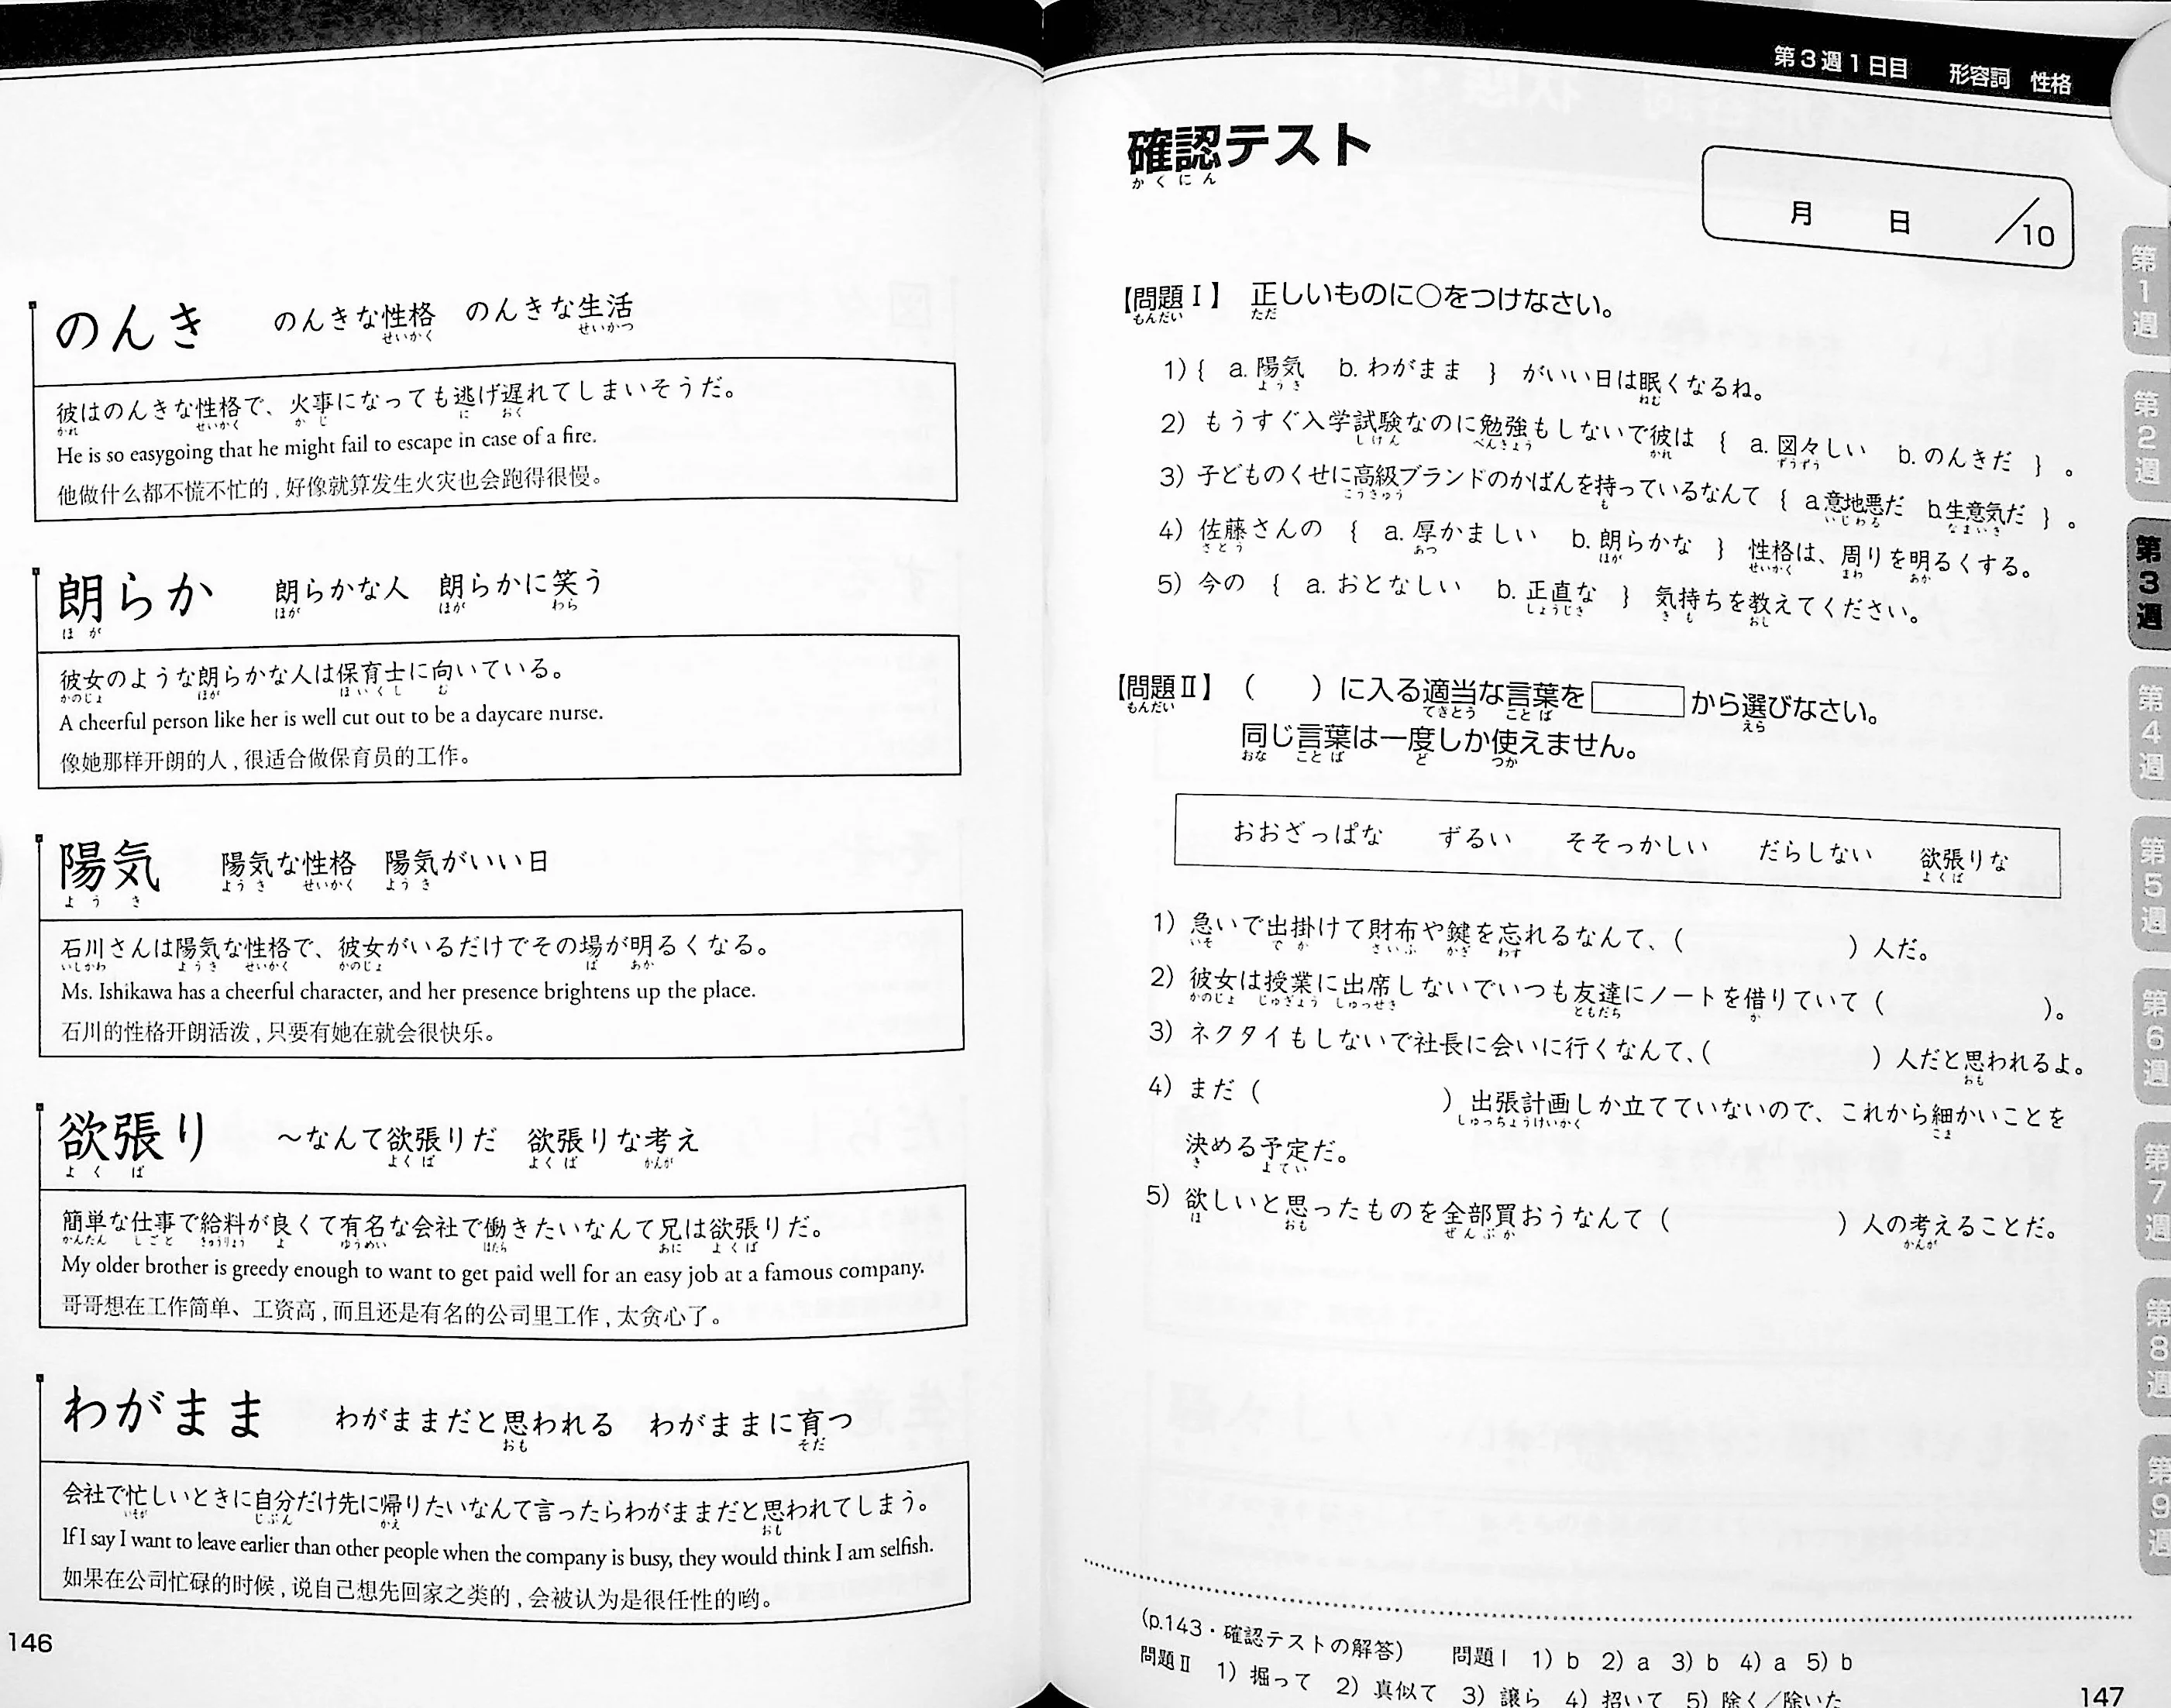 のんき のんきな性格 のんきな生活
せいかく せいかつ
彼はのんきな性格で、火事になっても逃げ遅れてしまいそうだ。
かれ せいかく かじ に おく
He is so easygoing that he might fail to escape in case of a fire.
他做什么都不慌不忙的,好像就算发生火灾也会跑得很慢。
朗らか 朗らかな人 朗らかに笑う
ほが ほが ほが わら
彼女のような朗らかな人は保育士に向いている。
かのじょ ほが ほいくし む
A cheerful person like her is well cut out to be a daycare nurse.
像她那样开朗的人,很适合做保育员的工作。
陽気 陽気な性格 陽気がいい日
ようき ようき せいかく ようき
石川さんは陽気な性格で、彼女がいるだけでその場が明るくなる。
いしかわ ようき せいかく かのじょ ば あか
Ms. Ishikawa has a cheerful character, and her presence brightens up the place.
石川的性格开朗活泼,只要有她在就会很快乐。
欲張り ～なんて欲張りだ 欲張りな考え
よくば よくば よくば かんが
簡単な仕事で給料が良くて有名な会社で働きたいなんて兄は欲張りだ。
かんたん しごと きゅうりょう よ ゆうめい はたら あに よくば
My older brother is greedy enough to want to get paid well for an easy job at a famous company.
哥哥想在工作简单、工资高,而且还是有名的公司里工作,太贪心了。
わがまま わがままだと思われる わがままに育つ
おも そだ
会社で忙しいときに自分だけ先に帰りたいなんて言ったらわがままだと思われてしまう。
いそが じぶん かえ おも
If I say I want to leave earlier than other people when the company is busy, they would think I am selfish.
如果在公司忙碌的时候,说自己想先回家之类的,会被认为是很任性的哟。
146
第3週1日目 形容詞 性格
確認テスト
かくにん
月 日 ／10
【問題Ⅰ】 正しいものに○をつけなさい。
もんだい ただ
1) { a. 陽気 b. わがまま } がいい日は眠くなるね。
ようき ねむ
2) もうすぐ入学試験なのに勉強もしないで彼は { a. 図々しい b. のんきだ } 。
しけん べんきょう かれ ずうずう
3) 子どものくせに高級ブランドのかばんを持っているなんて { a.意地悪だ b.生意気だ } 。
こうきゅう も いじわる なまいき
4) 佐藤さんの { a. 厚かましい b. 朗らかな } 性格は、周りを明るくする。
さとう あつ ほが せいかく まわ あか
5) 今の { a. おとなしい b. 正直な } 気持ちを教えてください。
しょうじき きも おし
【問題Ⅱ】 ( )に入る適当な言葉を から選びなさい。
もんだい てきとう ことば えら
同じ言葉は一度しか使えません。
おな ことば ど つか
おおざっぱな ずるい そそっかしい だらしない 欲張りな
よくば
1) 急いで出掛けて財布や鍵を忘れるなんて、( )人だ。
いそ でか さいふ かぎ わす
2) 彼女は授業に出席しないでいつも友達にノートを借りていて( )。
かのじょ じゅぎょう しゅっせき ともだち か
3) ネクタイもしないで社長に会いに行くなんて、( )人だと思われるよ。
おも
4) まだ( )出張計画しか立てていないので、これから細かいことを
しゅっちょうけいかく こま
決める予定だ。
き よてい
5) 欲しいと思ったものを全部買おうなんて( )人の考えることだ。
ほ おも ぜんぶか かんが
(p.143・確認テストの解答) 問題Ⅰ 1) b 2) a 3) b 4) a 5) b
問題Ⅱ 1) 掘って 2) 真似て 3) 譲ら 4) 招いて 5) 除く／除いた
147
第1週
第2週
第3週
第4週
第5週
第6週
第7週
第8週
第9週